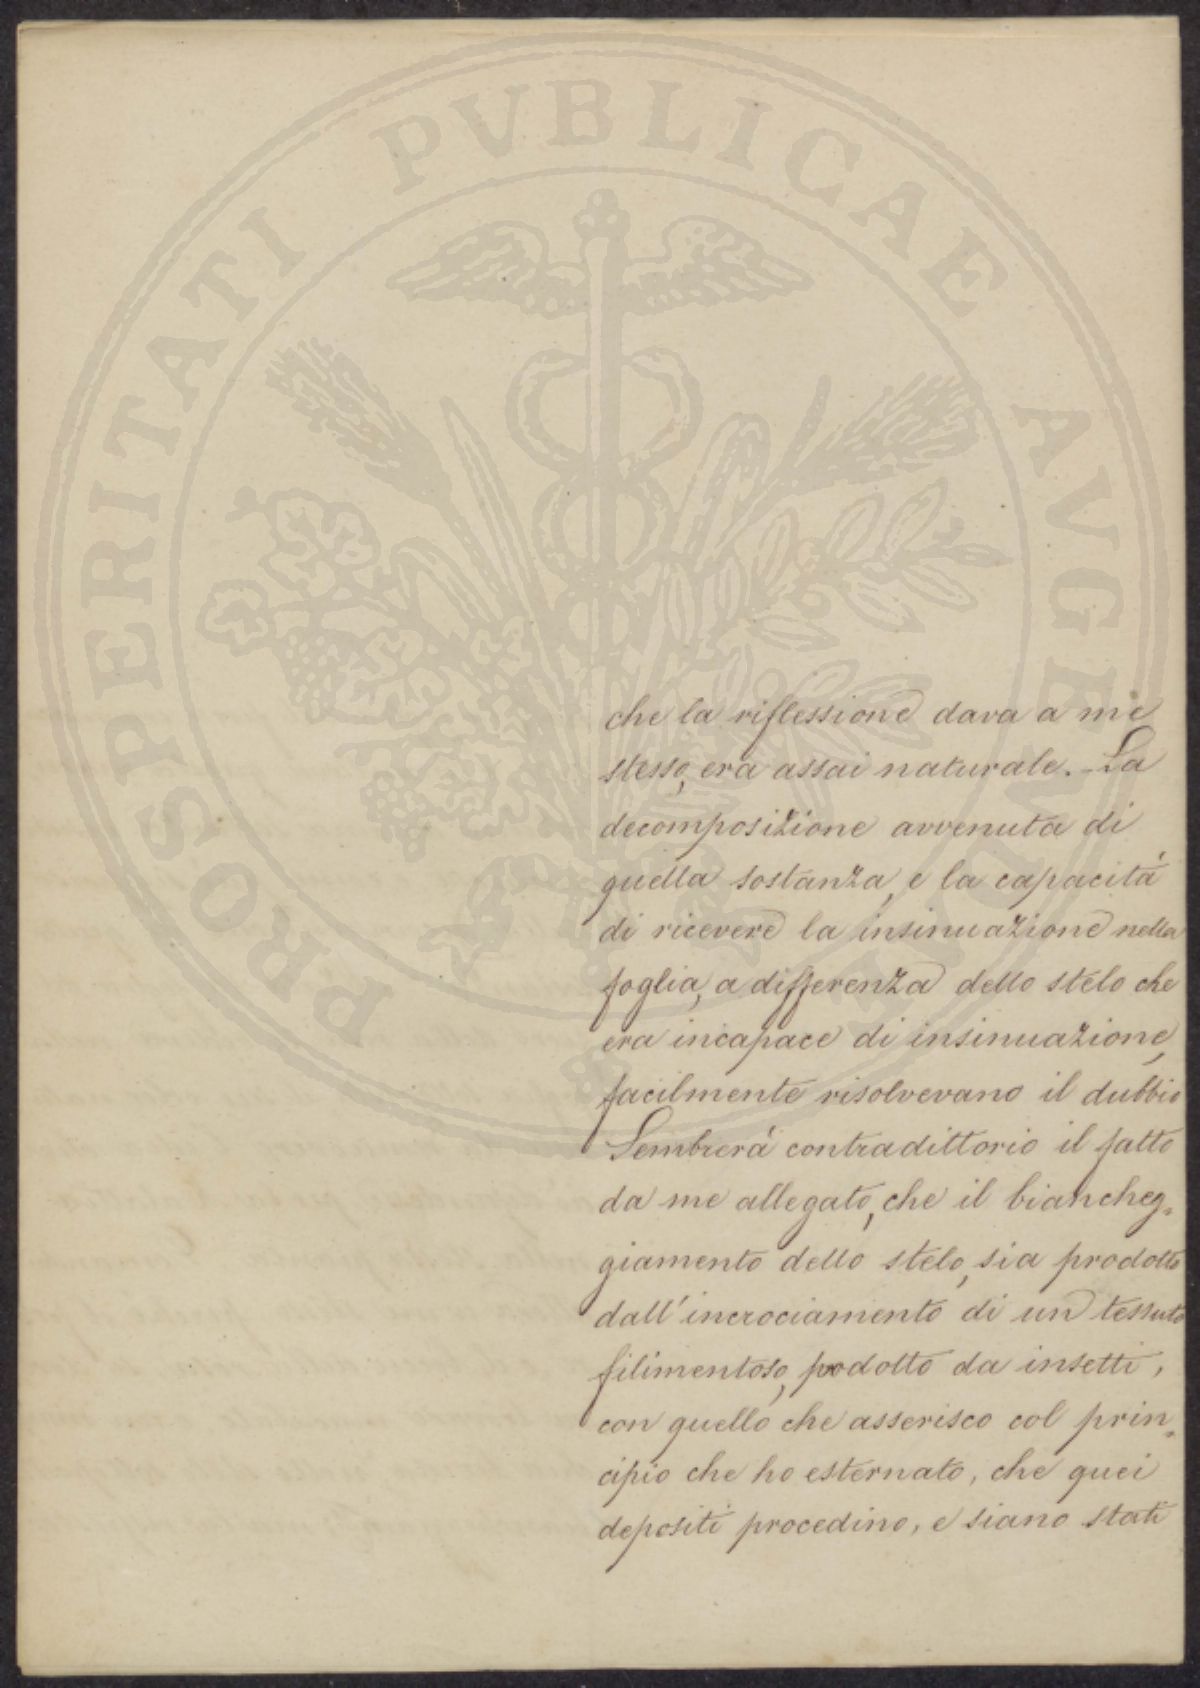 PROSPERITATI PVBLICAE AVGENDAE
che la riflessione dava a me
stesso, era assai naturale. - La
decomposizione avvenuta di
quella sostanza, e la capacità
di ricevere la insinuazione nella
foglia, a differenza dello stelo che
era incapace di insinuazione,
facilmente risolvevano il dubbio
Sembrerá contradittorio il fatto
da me allegato, che il biancheg=
giamento dello stelo, sia prodotto
dall'incrociamento di un tessuto
filimentoso, podotto da insetti,
con quello che asserisco col prin=
cipio che ho esternato, che quei
depositi procedino, e siano stati